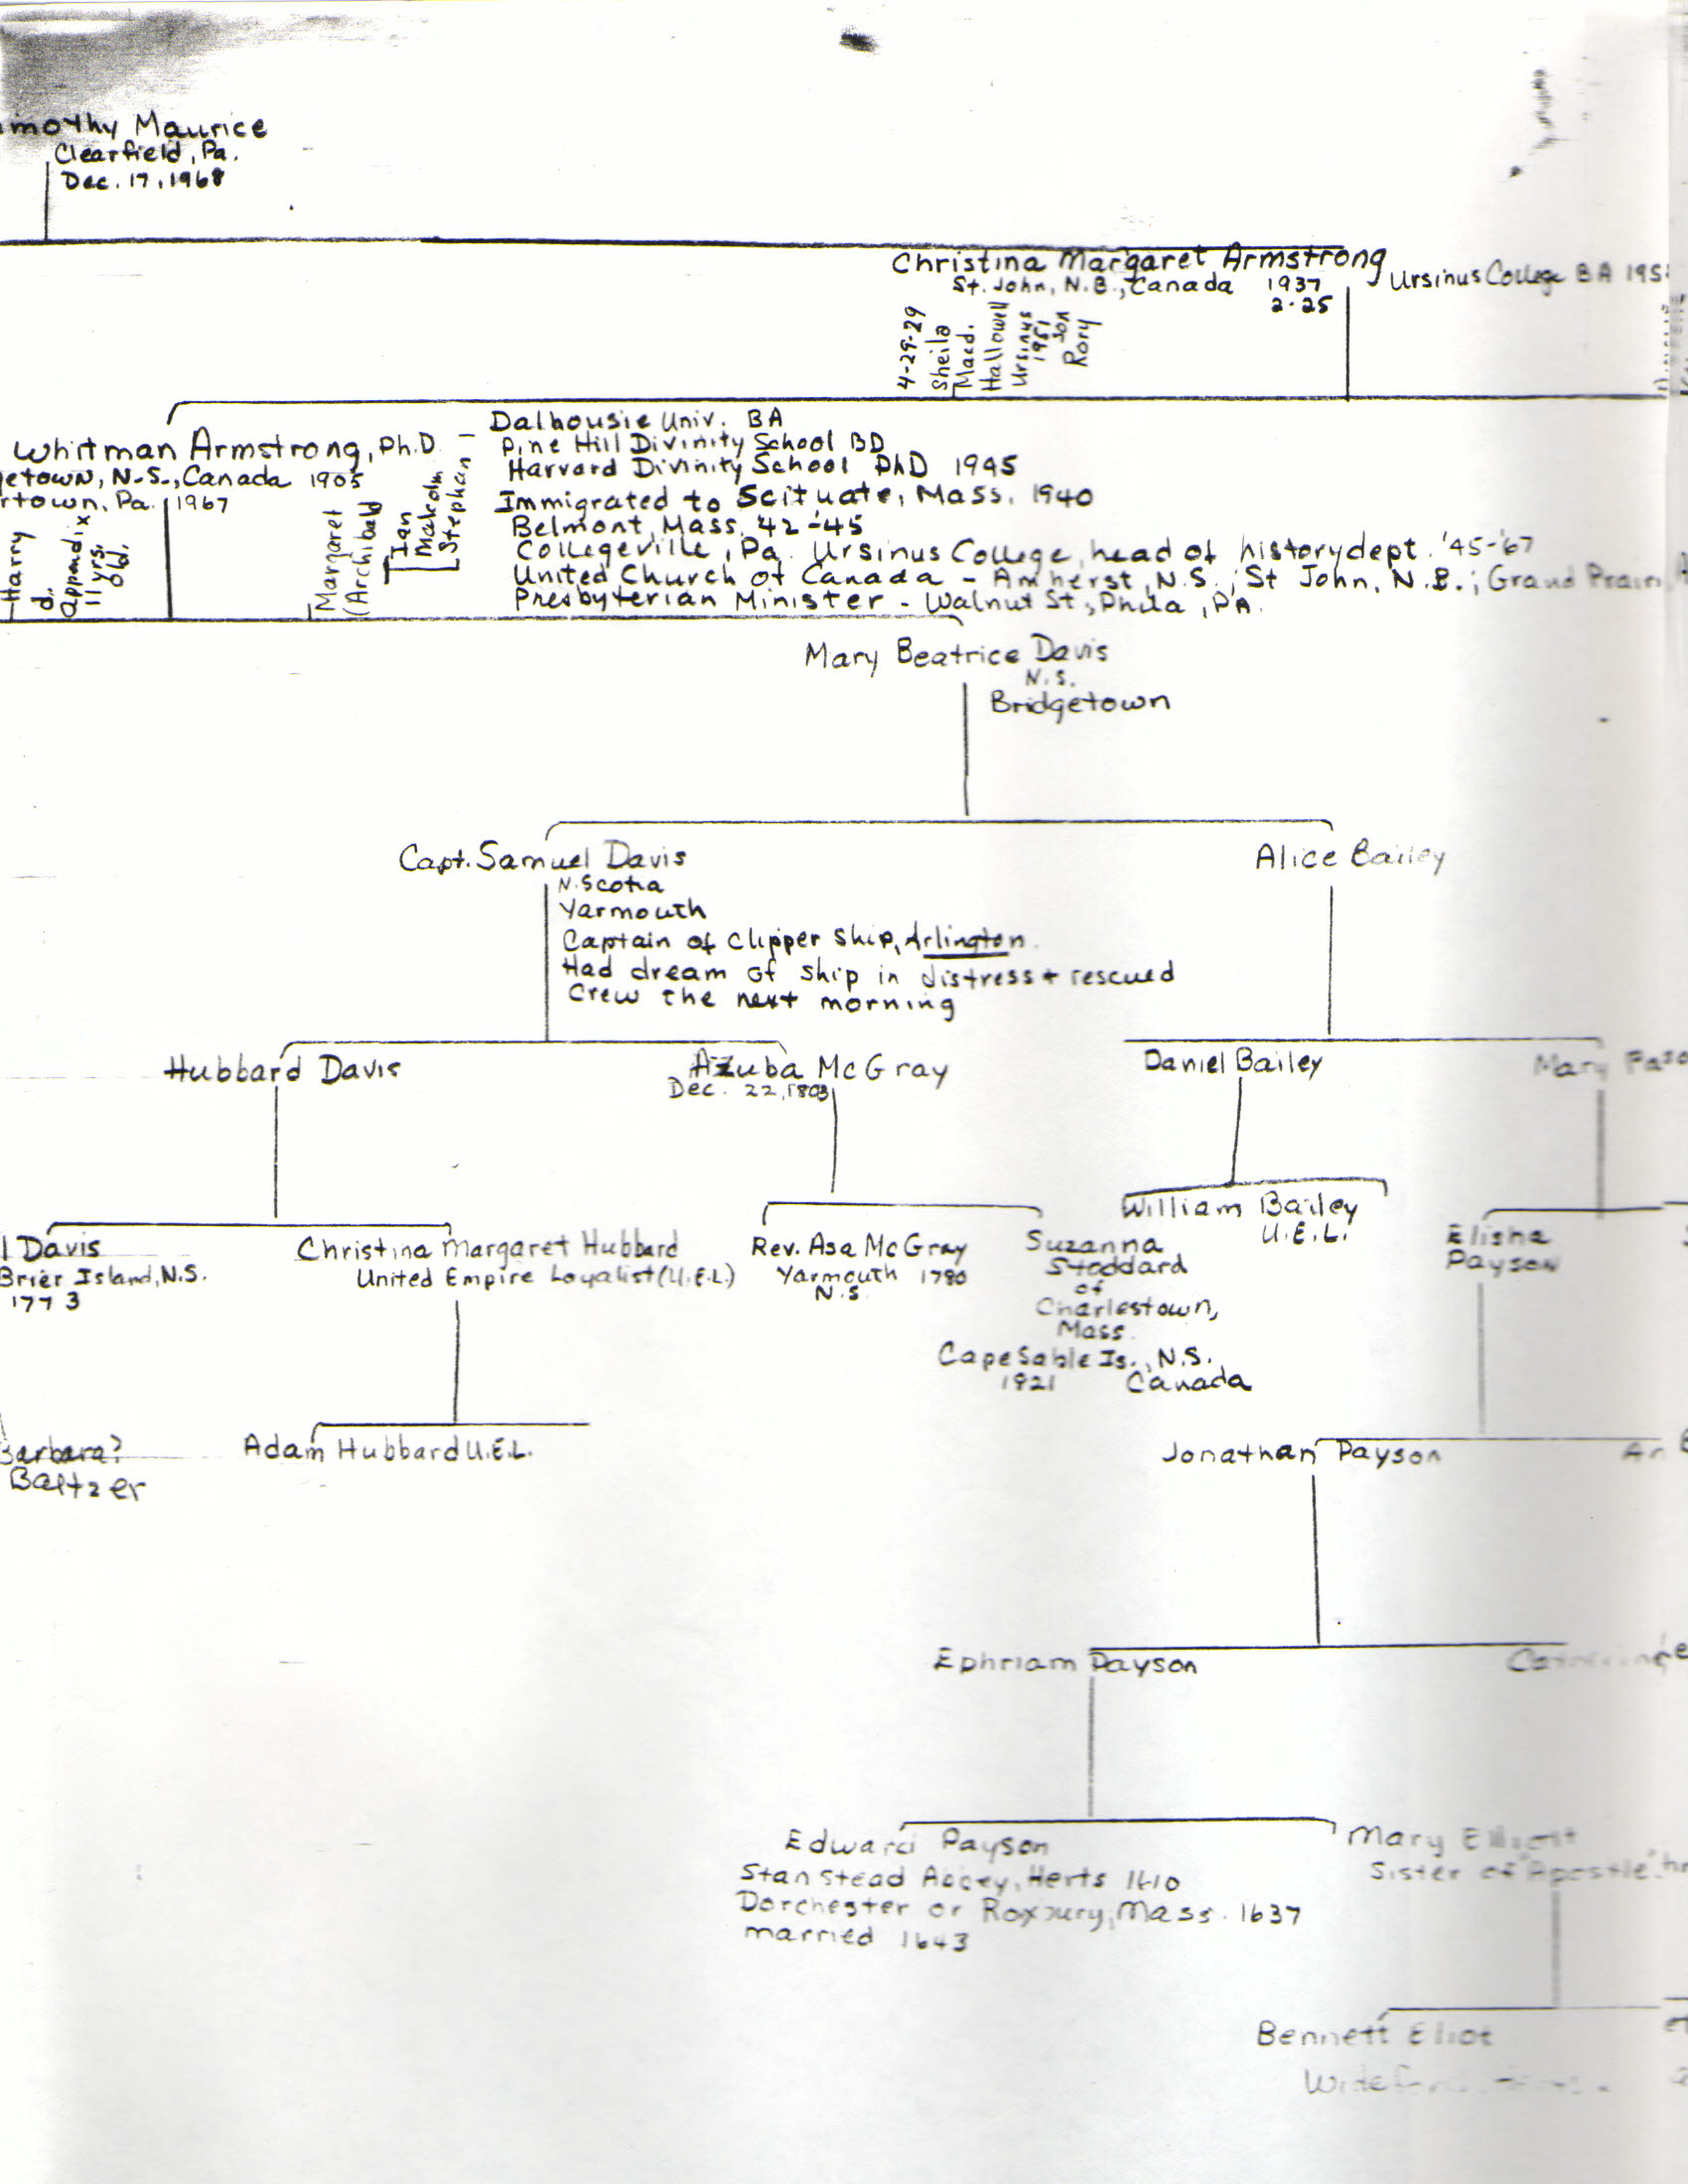 Maurice
Clearfield, Pa.
Dec. 17, 1968
Christina Margaret Armstrong
St. John, N.B., Canada 1937
2-25
Ursinus College BA
4-29-29
Sheila
Macd.
Hallowell
Ursinus
1951
son
Rory
Whitman Armstrong, Ph.D. –
N.S., Canada 1905
Pa. 1967
Harry
d.
appendix
11 yrs.
old.
Margaret
(Archibald
Ian
Malcolm
Stephen
Dalhousie Univ. BA
Pine Hill Divinity School BD
Harvard Divinity School PhD 1945
Immigrated to Scituate, Mass. 1940
Belmont, Mass. '42-'45
Collegeville, Pa. Ursinus College, head of history dept. '45-'67
United Church of Canada – Amherst, N.S.; St John, N.B.; Grand
Presbyterian Minister – Walnut St, Phila, PA.
Mary Beatrice Davis
N.S.
Bridgetown
Capt. Samuel Davis
N. Scotia
Yarmouth
Captain of Clipper Ship, Arlington.
Had dream of ship in distress + rescued
Crew the next morning
Alice Bailey
Hubbard Davis
Azuba McGray
Dec. 22, 1803
Daniel Bailey
Mary
Davis
Brier Island, N.S.
1773
Christina Margaret Hubbard
United Empire Loyalist (U.E.L.)
Rev. Asa McGray
Yarmouth 1780
N.S.
Suzanna
Stoddard
of
Charlestown,
Mass.
Cape Sable Is., N.S.
1821 Canada
William Bailey
U.E.L.
Elisha
Payson
Barbara?
Baltzer
Adam Hubbard U.E.L.
Jonathan Payson
Ephriam Payson
Edward Payson
Stanstead Abbey, Herts 1610
Dorchester or Roxbury, Mass. 1637
married 1643
Mary Elliott
Sister of "Apostle"
Bennett Eliot